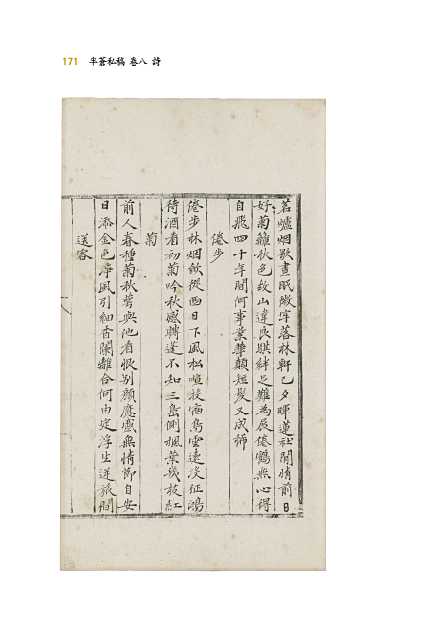 171 半蒼私稿 卷八 詩
茗爐烟歇晝眠微寧落林軒已夕暉蓮社閒情前日
好菊籬秋色故山違良騏絆足難爲展倦鶴無心得
自飛四十年間何事業華顚短髮又成稀
倦步
倦步林烟歛從西日下風松喧接宿鳥雲遠没征鴻
待酒看初菊吟秋感轉蓬不知三島側楓葉幾枝紅
菊
前人春種菊秋蕚與池看恨别顔應戲無情節自安
日添金色淨風引細香闌離合何由定浮生逆旅間
送客